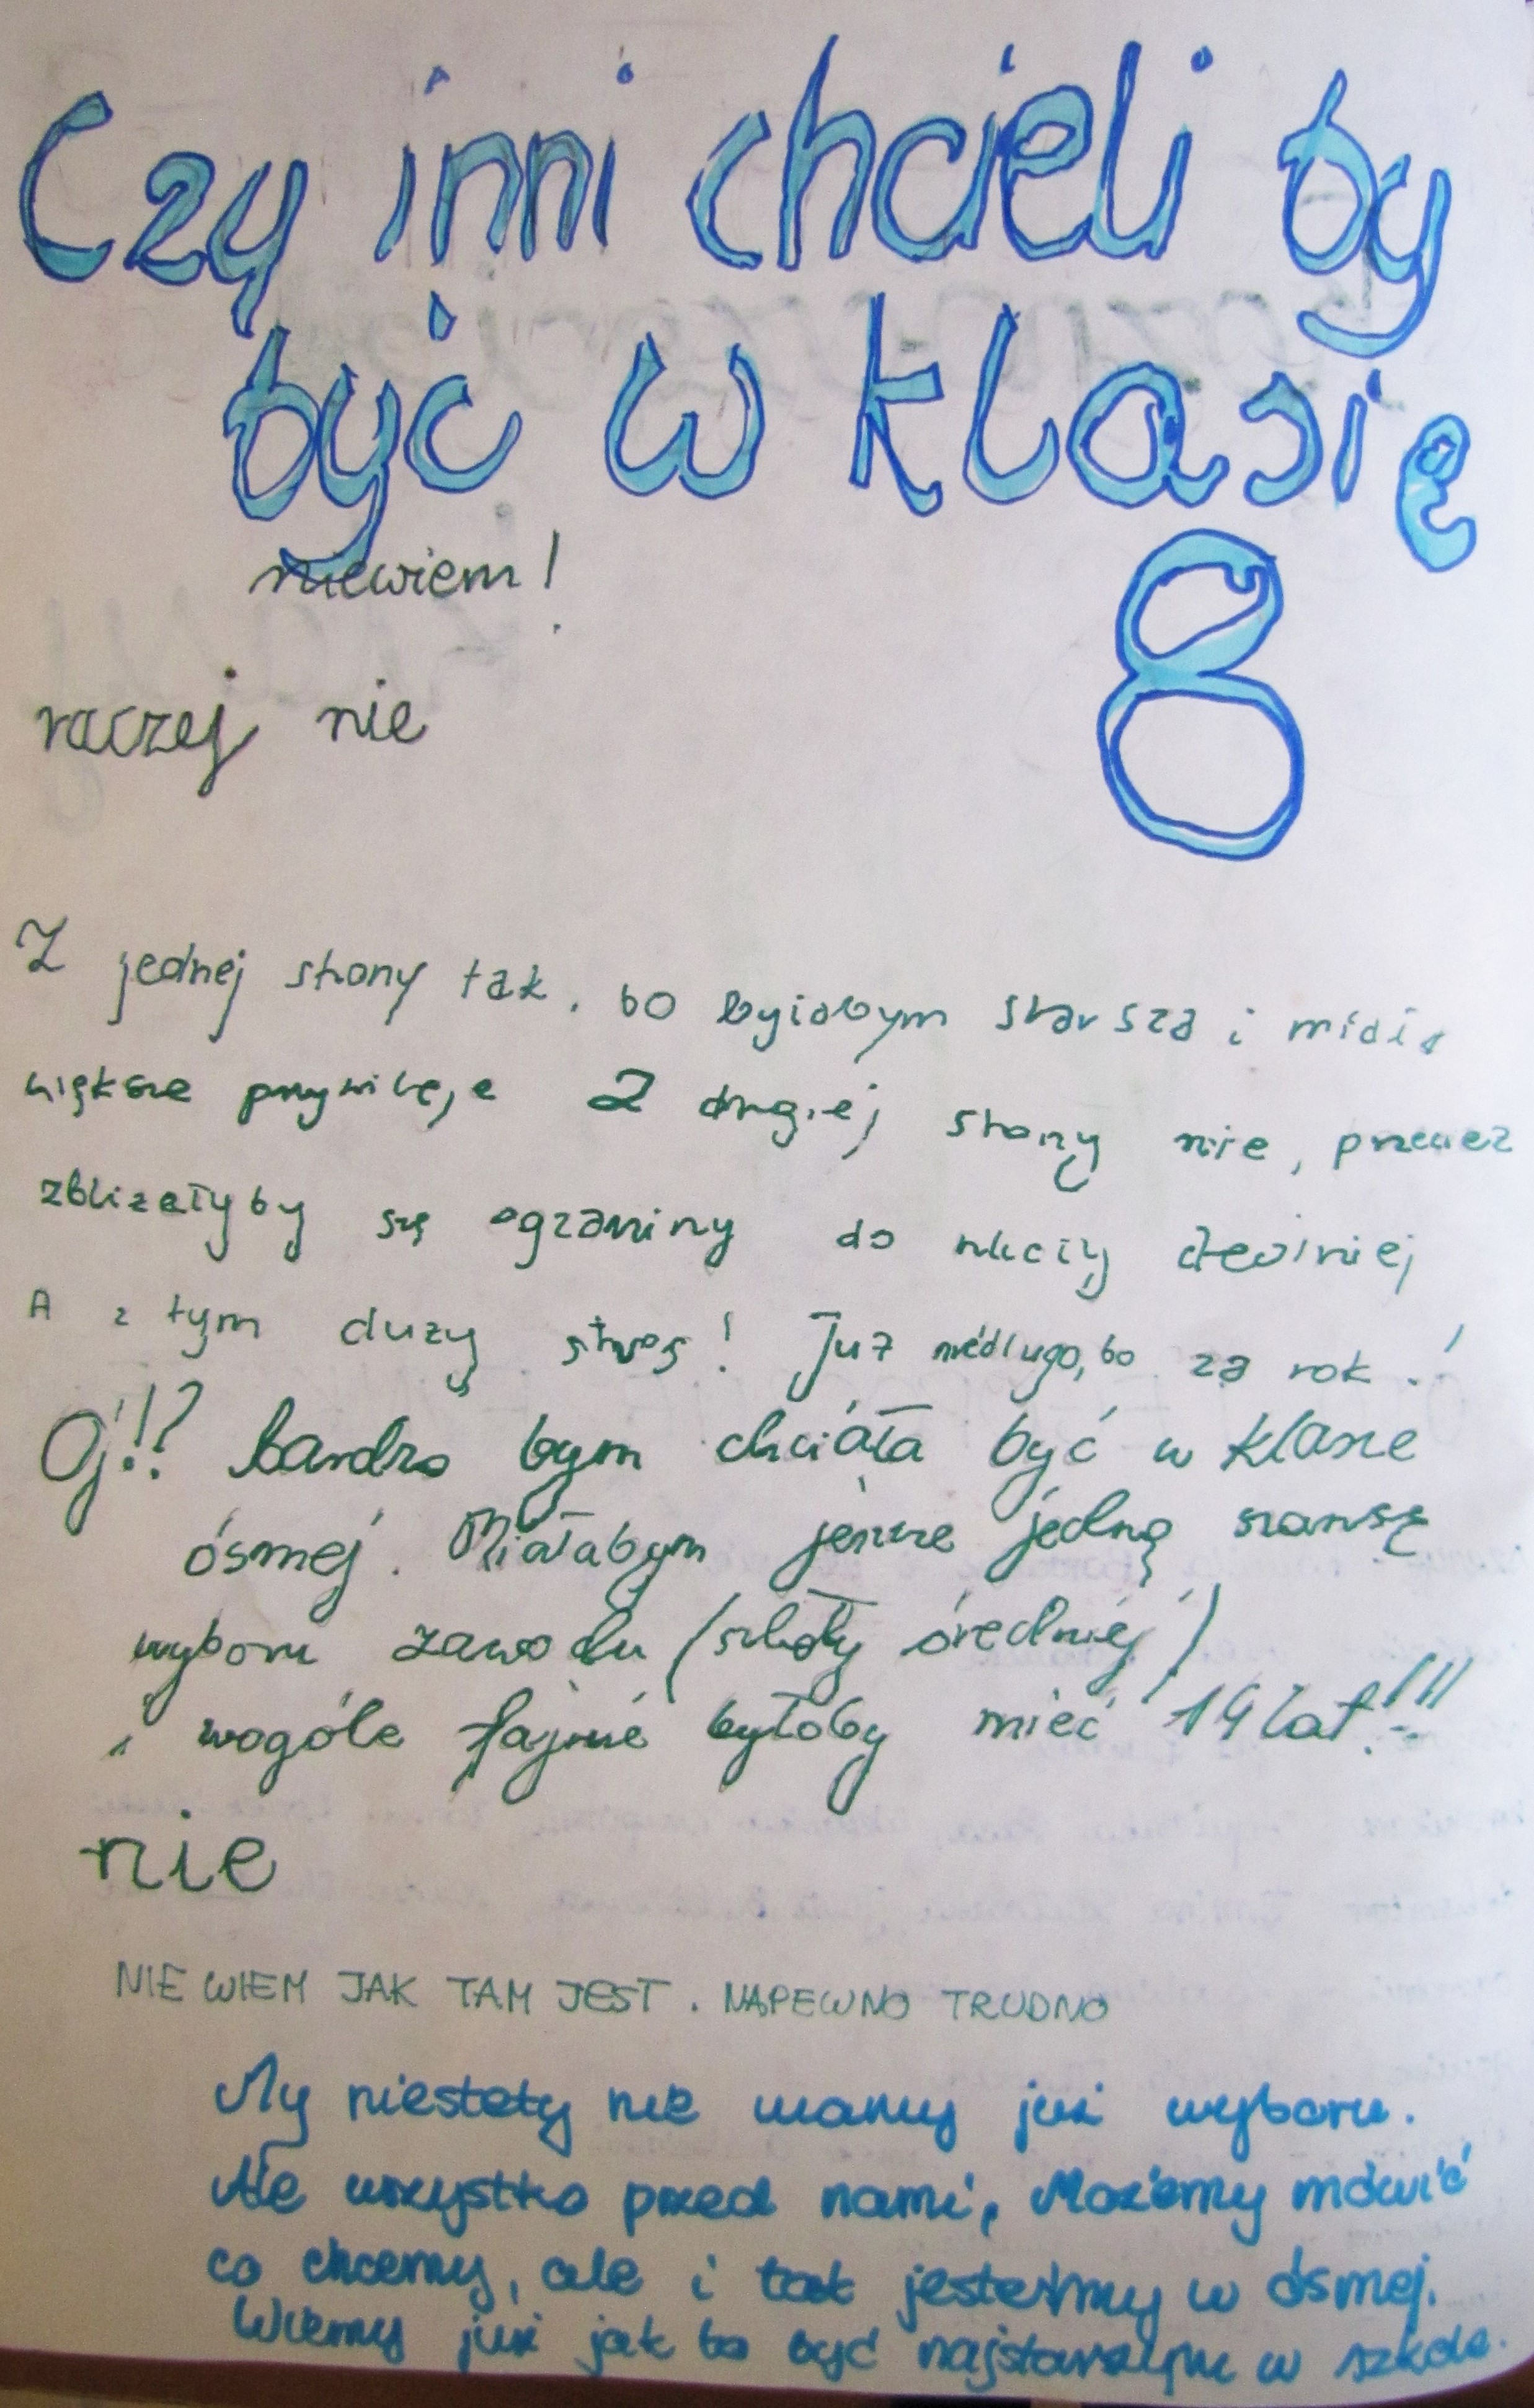 Czy inni chcieli by
być w klasię
8
niewiem!
raczej nie
Z jednej strony tak, bo byłabym starsza i miała
większe przywileje Z drugiej strony nie, przecież
zbliżałyby się egzaminy do szkoły średniej
A z tym duży stres! Już niedługo, bo za rok.!
Oj!!? bardzo bym chciała być w klasie
ósmej. Miałabym jeszcze jedną szansę
wyboru zawodu (szkoły średniej)
i wogóle fajnie byłoby mieć 14 lat!!!
nie
NIE WIEM JAK TAM JEST. NAPEWNO TRUDNO
My niestety nie mamy już wyboru.
Ale wszystko przed nami, Możemy mówić
co chcemy, ale i tak jesteśmy w ósmej.
Wiemy już jak to być najstarszym w szkole.